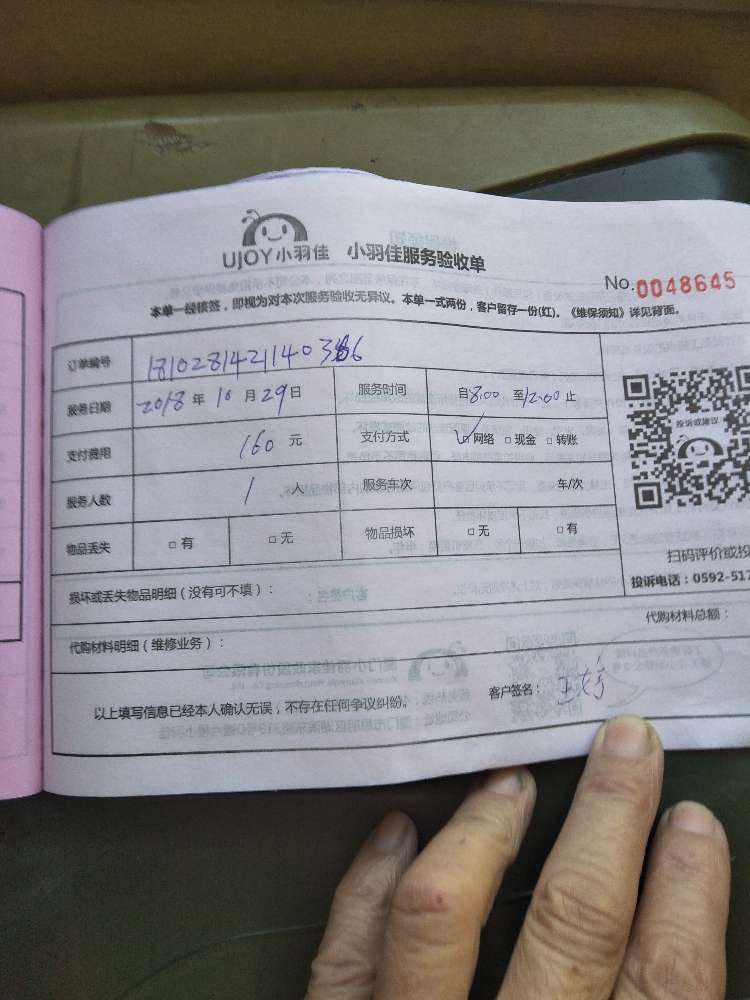 UJOY小羽佳 小羽佳服务验收单
No.0048645
本单一经核签，即视为对本次服务验收无异议。本单一式两份，客户留存一份(红)。《维保须知》详见背面。
订单编号
服务日期 2018 年 10 月 29 日 服务时间 自 8:00 至 12:00 止
支付费用 160 元 支付方式 □网络 □现金 □转账
服务人数 1 人 服务车次 车/次
物品丢失 □有 □无 物品损坏 □无 □有
投诉或建议
扫码评价或投
投诉电话：0592-517
损坏或丢失物品明细（没有可不填）：
代购材料明细（维修业务）： 代购材料总额：
以上填写信息已经本人确认无误，不存在任何争议纠纷。 客户签名：